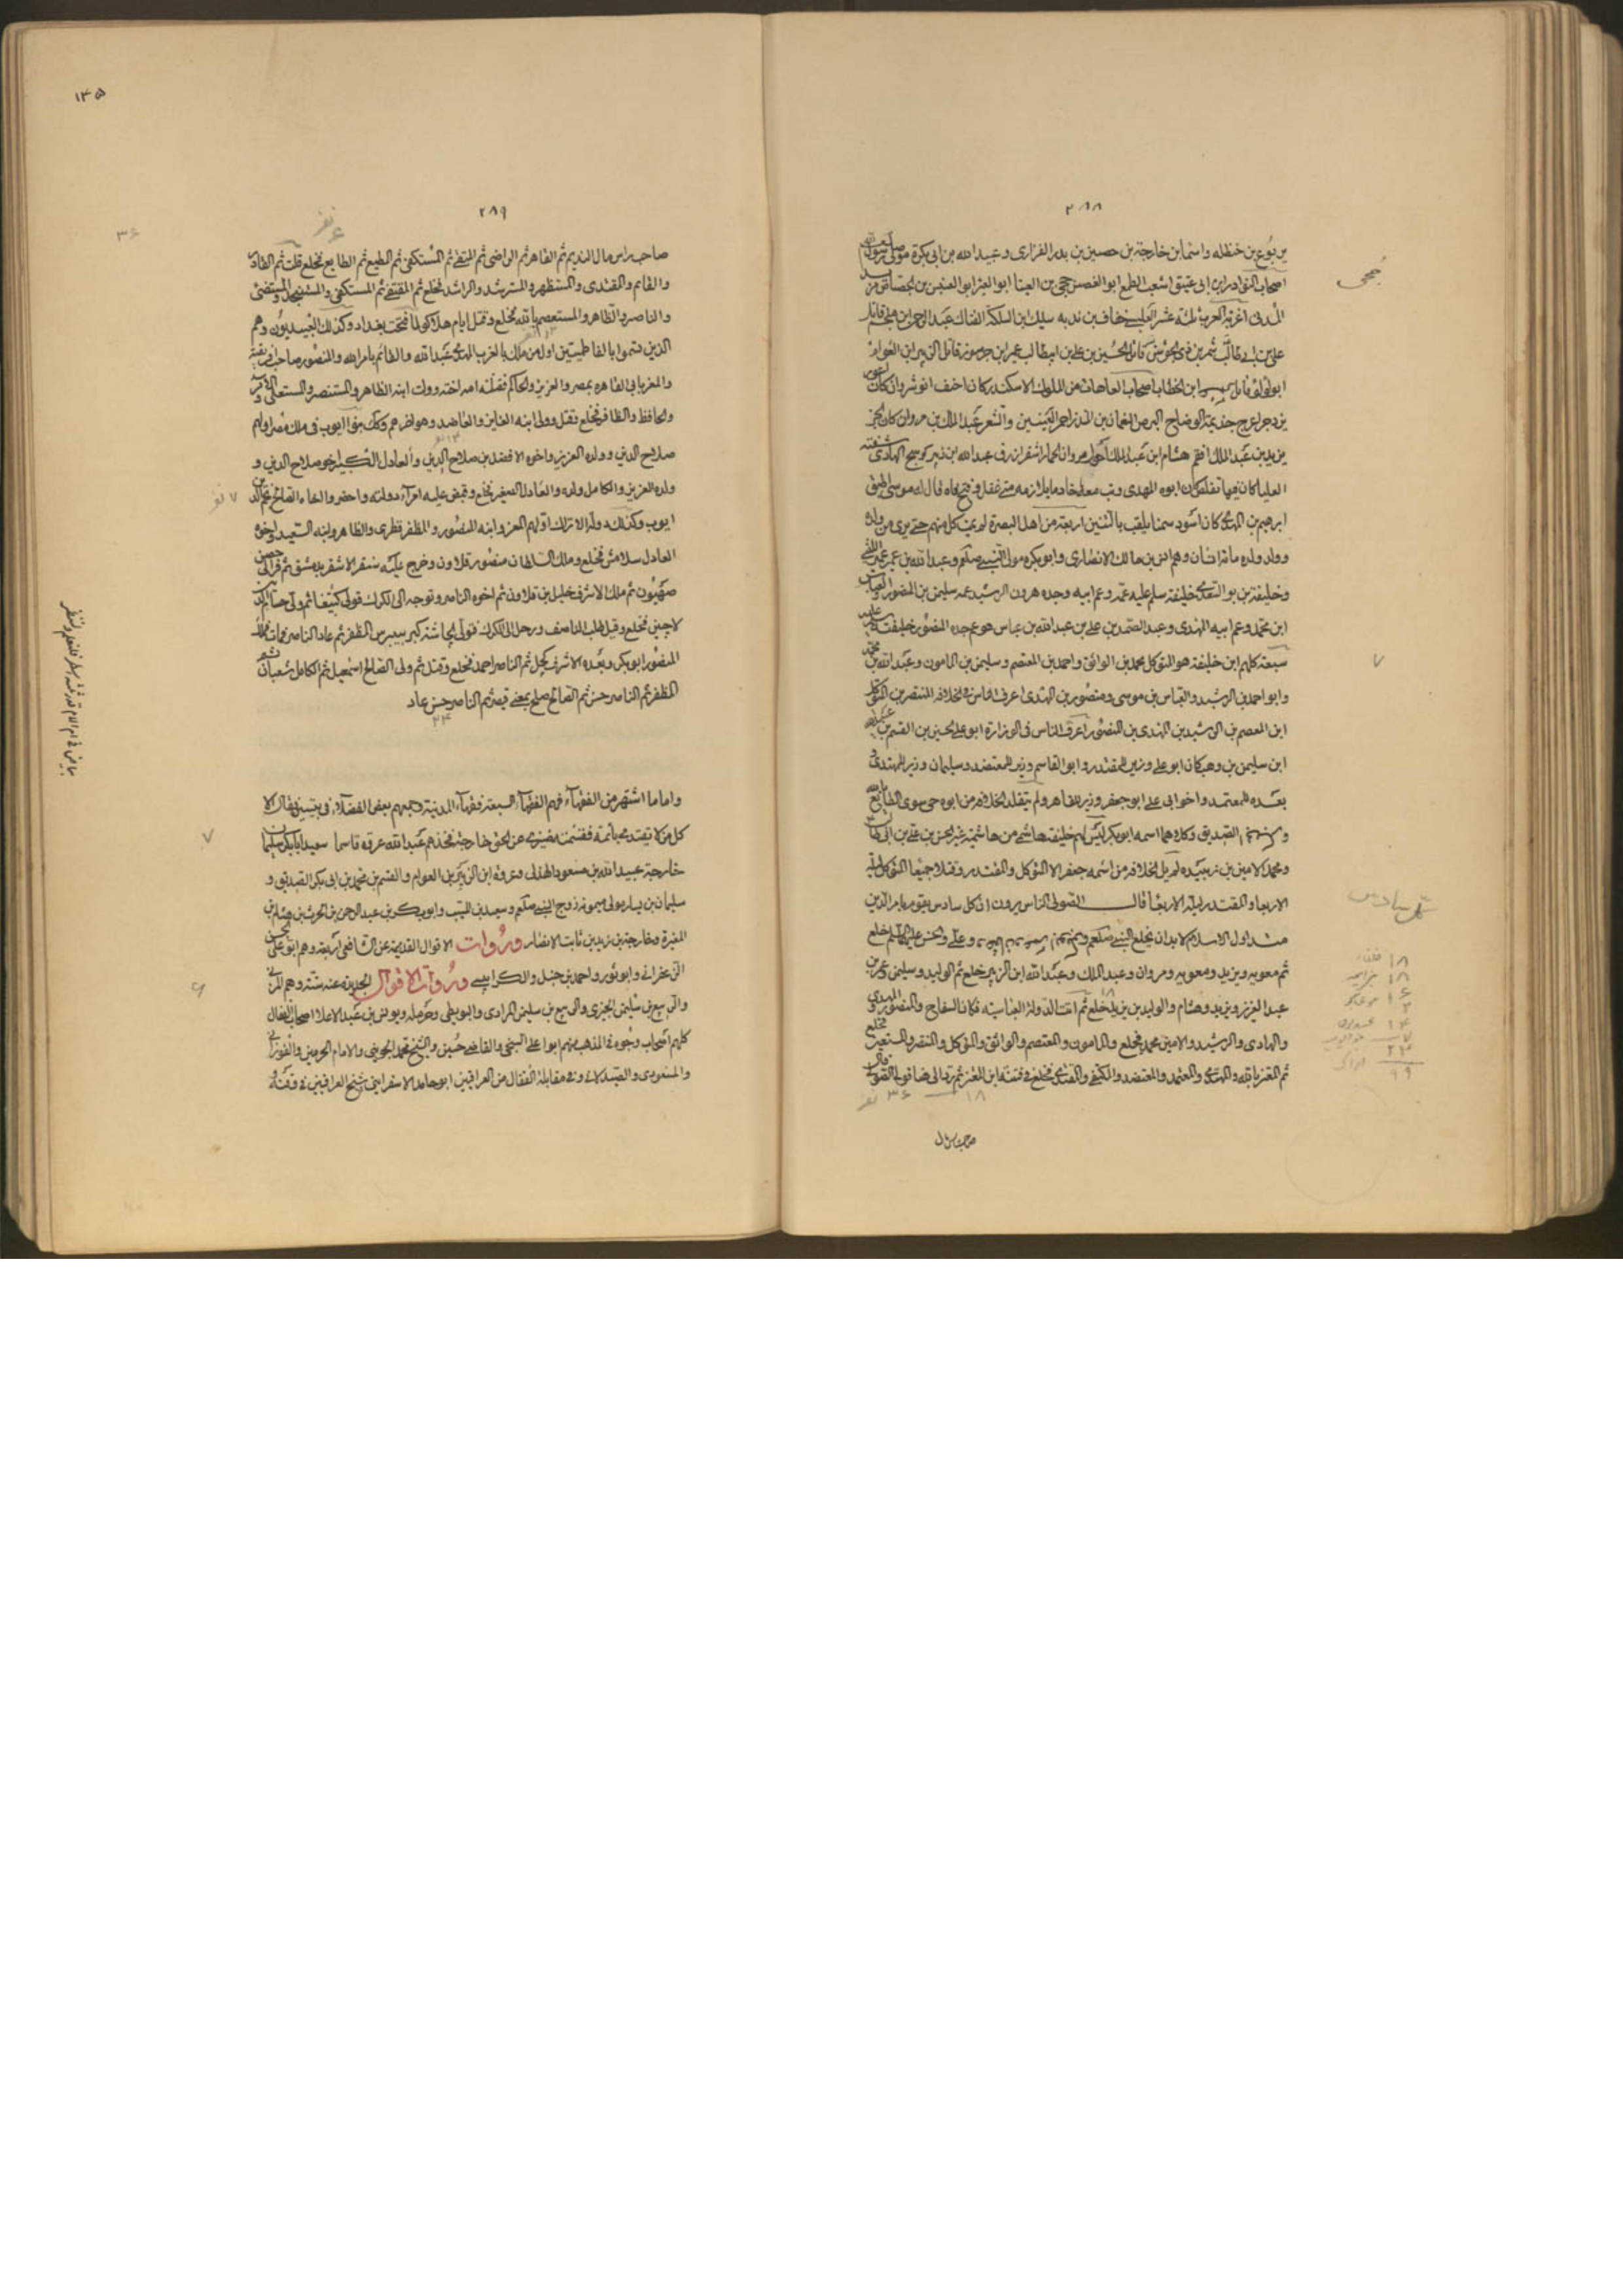 ٢٨٨
يربوع بن حنظله واسما بن خارجة بن حصين بن بدر الفزارى وعبيد الله بن ابى بكرة مولى رسول الله
اصحاب النوادر ابن ابى عتيق اشعب الطمع ابو الغصن جحى بن العينا ابو العبر ابو العنبس بن الجصاص مزبد
جُحى
المدنى اغربة العرب ثلثة عنتر العبسى خفاف بن ندبه سليك ابن السلكة الفتاك عبد الرحمن ابن ملجم قاتل
على بن ابى طالب شمر بن ذى الجوشن قاتل الحسين بن على بن ابيطالب عمير ابن جرموز قاتل الزبير ابن العوام
ابو لولو قاتل ابن الخطاب اصحاب العاهات من الملوك الاسكندر كان اخنف انوشروان كان اعور
يزدجرد اعرج جذيمة الوضاح ابرص النعمان بن المنذر احمر العينين والشعر عبد الملك بن مروان كان ابخر
يزيد بن عبد الملك افقم هشام ابن عبد الملك احول مروان الحمار اشقر ازرق عبد الله ابن زبير كوسج الهادى شفته
العليا كان فيها تقلص كان ابوه المهدى رتب معه خادما يلازمه متى غفل وفتح فاه قال له موسى اطبق
ابرهيم بن المهدى كان اسود سمينا يلقب بالتنين اربعة من اهل البصرة لم يمت كل منهم حتى يرى من ولده
وولد ولده مائة انسان وهم انس بن مالك الانصارى وابو بكره مولى النبى صلعم وعبد الله بن عمير الليثى
وخليفة بن بو السعدى خليفة سلم عليه عمه وعم ابيه وجده هرون الرشيد عمه سليمن بن المنصور والعباس
ابن محمد وعم ابيه المهدى وعبد الصمد بن على بن عبد الله بن عباس هو عم جده المنصور خليفة سلم عليه
سبعة كلهم ابن خليفة هو المتوكل محمد بن الواثق واحمد بن المعتصم وسليمن بن المامون وعبد الله بن محمد
٧
وابو احمد بن الرشيد والعباس بن موسى ومنصور بن المهدى اعرف الناس فى الخلافة المنتصر بن المتوكل
ابن المعتصم بن الرشيد بن المهدى بن المنصور اعرق الناس فى الوزارة ابو على الحسين بن القسم بن عبيد الله
ابن سليمن بن وهب كان ابو على وزير المقتدر وابو القاسم وزير المعتضد وسليمان وزير المهتدى
بعده المعتمد واخو ابى على ابو جعفر وزير القاهر ولم يتقلد الخلافه من ابوه حى سوى الطايع لله
و الصديق وكلاهما اسمه ابو بكر ليس لهم خليفة هاشمى من هاشمية غير الحسن بن على بن ابى طالب
ومحمد الامين بن زبيده لم يل الخلافه من اسمه جعفر الا المتوكل والمقتدر وقتلا جميعا المتوكل ليلة
الاربعا والمقتدر ليلة الاربعا قال الصولى الناس يرون ان كل سادس يقوم بامر الدين
كل سادس
منذ اول الاسلام لا بد ان يخلع النبى صلعم وعلى والحسن عليهما السلم خلع
ثم معويه ويزيد ومعويه ومروان وعبد الملك وعبد الله ابن الزبير خلع ثم الوليد وسليمن وعمر بن
عبد العزيز ويزيد وهشام والوليد بن يزيد خلع ثم اتت الدولة العباسية فكان السفاح والمنصور والمهدى
والهادى والرشيد والامين محمد فخلع والمامون والمعتصم والواثق والمتوكل والمنتصر والمستعين فخلع
ثم المعتز بالله والمهتدى والمعتمد والمعتضد والمكتفى والمقتدر فخلع فى فتنة ابن المعتز ثم رد الى هنا قول الصولى قال
٣٦ نفر
١٨
صاحب راس مال
١٣٥
٢٨٩
٣٦
٦ نفر
صاحب راس مال النديم ثم القاهر ثم الراضى ثم المتقى ثم المستكفى ثم المطيع ثم الطايع فخلع قلت ثم القادر
والقايم والمقتدى والمستظهر والمسترشد والراشد فخلع ثم المقتفى ثم المستكفى والمستنجد والمستضئ
والناصر والظاهر والمستعصم بالله فخلع وقتل ايام هلاكو لما فتحت بغداد وكذلك العبيديون وهم
الذين تسموا بالفاطميين اول من ملك بالغرب المهدى عبد الله والقائم بامر الله والمنصور صاحب افريقية
والمعز بانى القاهره بمصر والعزيز والحاكم فقتلته اخته وولت ابنه الظاهر والمستنصر والمستعلى والآمر
والحافظ والظافر فخلع وقتل وولى ابنه الفايز والعاضد وهو اخرهم وكذلك بنو ايوب فى ملك مصر اولهم
صلاح الدين وولده العزيز واخوه الافضل بن صلاح الدين والعادل الكبير اخو صلاح الدين و
ولده العزيز والكامل ولده والعادل الصغير فخلع وقبض عليه امرآء دولته واحضروا اخاه الصالح نجم الدين
٧ نفر
ايوب وكذلك دولة الاتراك اولهم المعز وابنه المنصور والمظفر قطزى والظاهر وابنه السعيد واخوه
العادل سلامش فخلع وملك السلطان منصور قلاون وخرج عليه سنقر الاشقر بدمشق ثم فر الى حصن
صهيون ثم ملك الاشرف خليل بن قلاون ثم اخوه الناصر وتوجه الى الكرك فولى كتبغا ثم ولى حسام الدين
لاجين فخلع وقيل طلب الناصف ورحل الى الكرك فولى الجاشنكير بيبرس المظفر ثم عاد الناصر فمات فملك
المنصور ابو بكر وبعده الاشرف كجل ثم الناصر احمد فخلع وقتل ثم ولى الصالح اسمعيل ثم الكامل شعبان ثم
المظفر ثم الناصر حسن ثم الصالح صلح ثم الناصر حسن عاد
٢٤
واما ما اشتهر من الفقهآء فهم الفقهآء السبعة فقهآء المدينة وجمعهم بعض الفضلآء فى بيتين فقال الا
كل من لا يقتدى بائمة فقسمته ضيزى عن الحق خارجة فخذهم عبيد الله عروة قاسما سعيد ابا بكر سليمان
٧
خارجة عبيد الله بن مسعود الهذلى وعروة ابن الزبير بن العوام والقسم بن محمد بن ابى بكر الصديق و
سليمان بن يسار مولى ميمونه زوج النبى صلعم وسعيد بن المسيب وابو بكر بن عبد الرحمن بن الحرث بن هشام بن
المغيرة وخارجة بن زيد بن ثابت الانصار ورُوات الاقوال القديمة عن الشافعى اربعة وهم ابو على
الزعفرانى وابو ثور واحمد بن حنبل والكرابيسى ورُوات الاقوال الجديدة عنه ستة وهم المزنى
٦
والربيع بن سليمن الجيزى والربيع بن سليمن المرادى والبويطى وحرمله ويونس بن عبد الاعلا اصحاب القفال
كلهم اصحاب وجوه فى المذهب منهم ابو على السنجى والقاضى حسين والشيخ محمد الجوينى والامام الحرمين والفورانى
والمسعودى والصيدلانى وفى مقابلة القفال من العراقيين ابو حامد الاسفراينى شيخ العراقيين فى وقته و